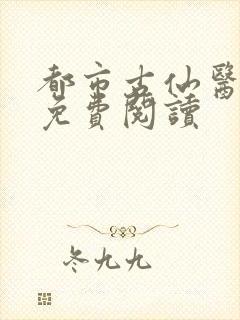 都市古仙醫
免費閱讀
冬九九